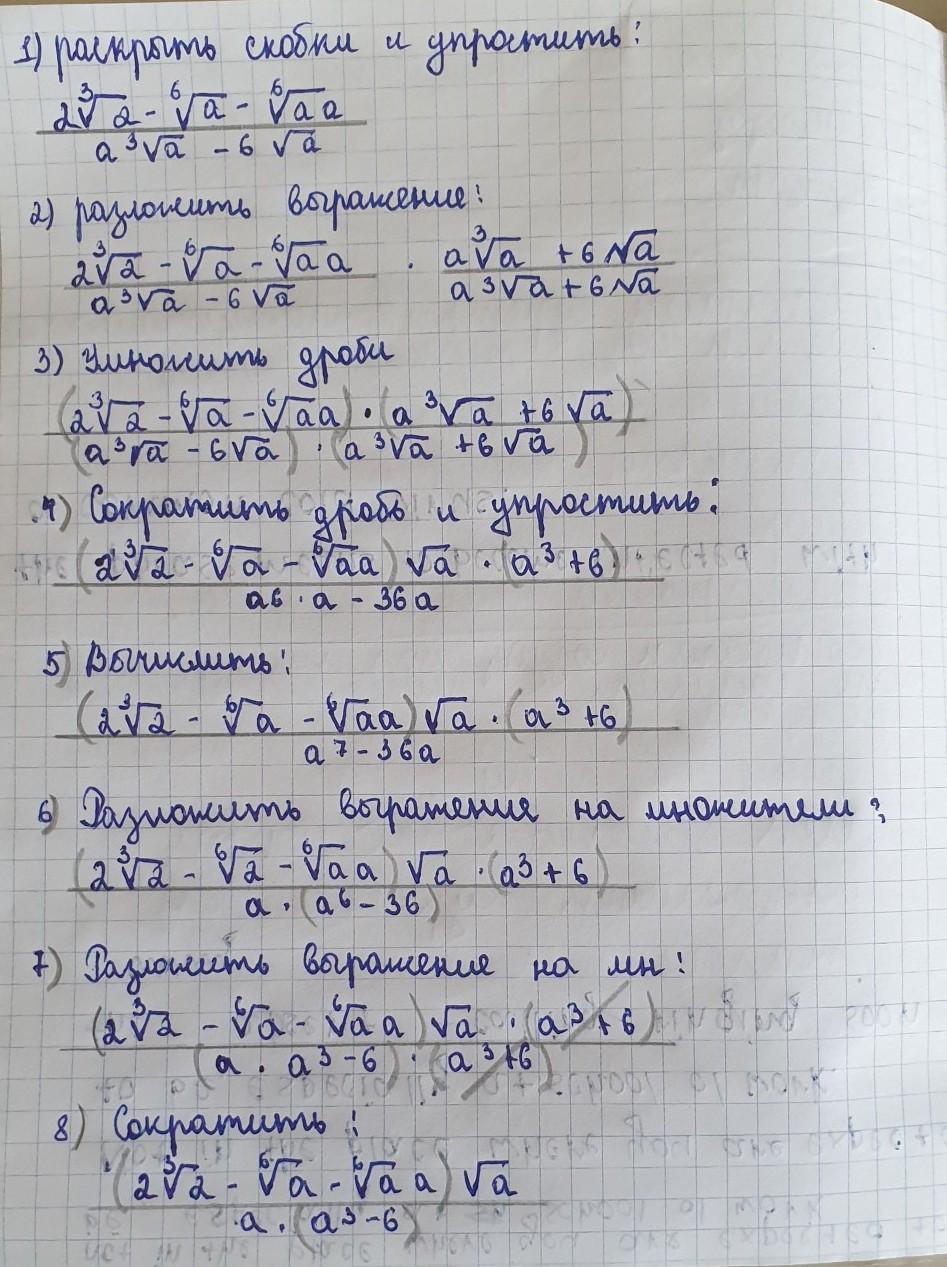 1) раскрыть скобки и упростить:
2∛2 - ⁶√a - ⁶√a a
a³√a - 6 √a
2) разложить выражение:
2∛2 - ⁶√a - ⁶√a a · a∛a + 6√a
a³√a - 6√a a³√a + 6√a
3) Умножить дроби
(2∛2 - ⁶√a - ⁶√a a) · (a³√a + 6√a)
(a³√a - 6√a) · (a³√a + 6√a)
4) Сократить дробь и упростить:
(2∛2 - ⁶√a - ⁶√a a) √a · (a³ + 6)
a6 · a - 36a
5) Вычислить:
(2∛2 - ⁶√a - ⁶√a a) √a · (a³ + 6)
a⁷ - 36a
6) Разложить выражение на множители:
(2∛2 - ⁶√2 - ⁶√a a) √a · (a³ + 6)
a · (a⁶ - 36)
7) Разложить выражение на мн:
(2∛2 - ⁶√a - ⁶√a a) √a · (a³ + 6)
(a · a³ - 6) · (a³ + 6)
8) Сократить:
(2∛2 - ⁶√a - ⁶√a a) √a
a · (a³ - 6)